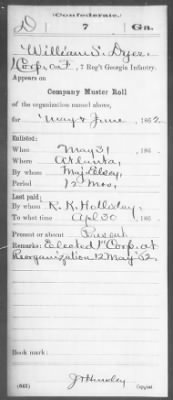 (Confederate.)
D 7 Ga.
William S. Dyer
Corp, Co. F, 7 Reg't Georgia Infantry.
Appears on
Company Muster Roll
of the organization named above,
for May & June, 1862
Enlisted:
When May 31, 186
Where Atlanta,
By whom Maj.
Period 12 Mos.
Last paid:
By whom R. K. Holladay,
To what time Apl 30, 186
Present or absent Present
Remarks: Elected 1" Corp. at
Reorganization 12 May '62.
Book mark:
(642) Copyist.